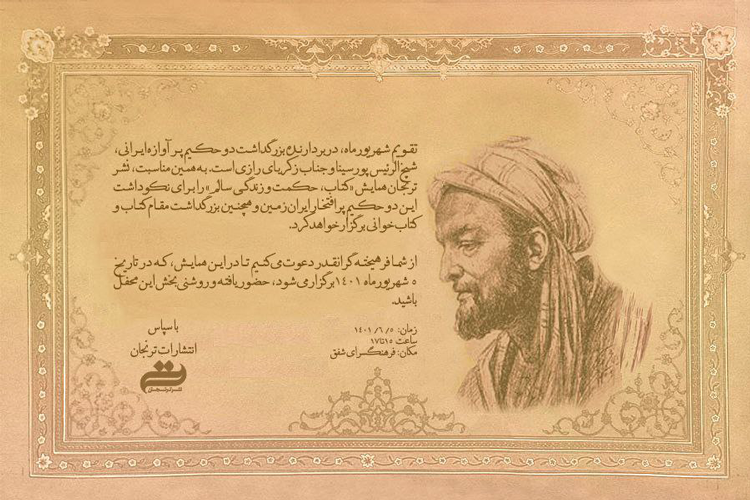 تقویم شهریورماه، دربردارنده بزرگداشت دو حکیم پرآوازه ایرانی،
شیخ‌الرئیس پورسینا و جناب زکریای رازی است. به همین مناسبت، نشر
ترنجان همایش «کتاب، حکمت و زندگی سالم» را برای نکوداشت
این دو حکیم پرافتخار ایران زمین و همچنین بزرگداشت مقام کتاب و
کتاب‌خوانی برگزار خواهد کرد.
از شما فرهیخته گرانقدر دعوت می‌کنیم تا در این همایش، که در تاریخ
۵ شهریورماه ۱۴۰۱ برگزار می‌شود، حضور یافته و روشنی بخش این محفل
باشید.
زمان: ۱۴۰۱/۶/۵
ساعت ۱۵ تا ۱۷
مکان: فرهنگسرای شفق
با سپاس
انتشارات ترنجان